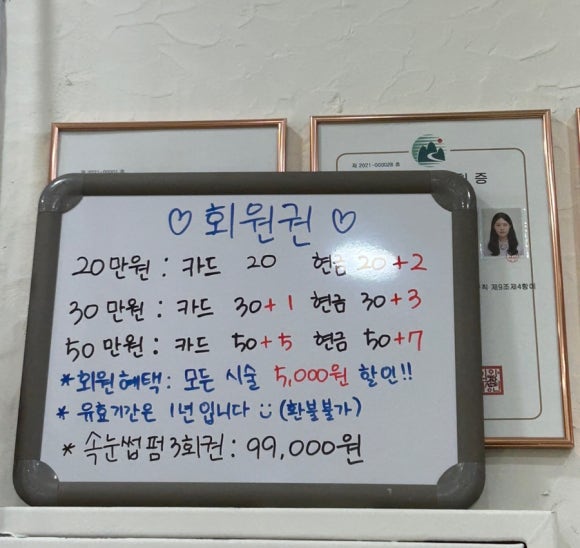 제 2021-000028 호
증
칙 제9조제4항에
♡ 회원권 ♡
20만원 : 카드 20 현금 20+2
30만원 : 카드 30+1 현금 30+3
50만원 : 카드 50+5 현금 50+7
*회원혜택: 모든 시술 5,000원 할인!!
* 유효기간은 1년입니다 (환불불가)
* 속눈썹펌 3회권 : 99,000원